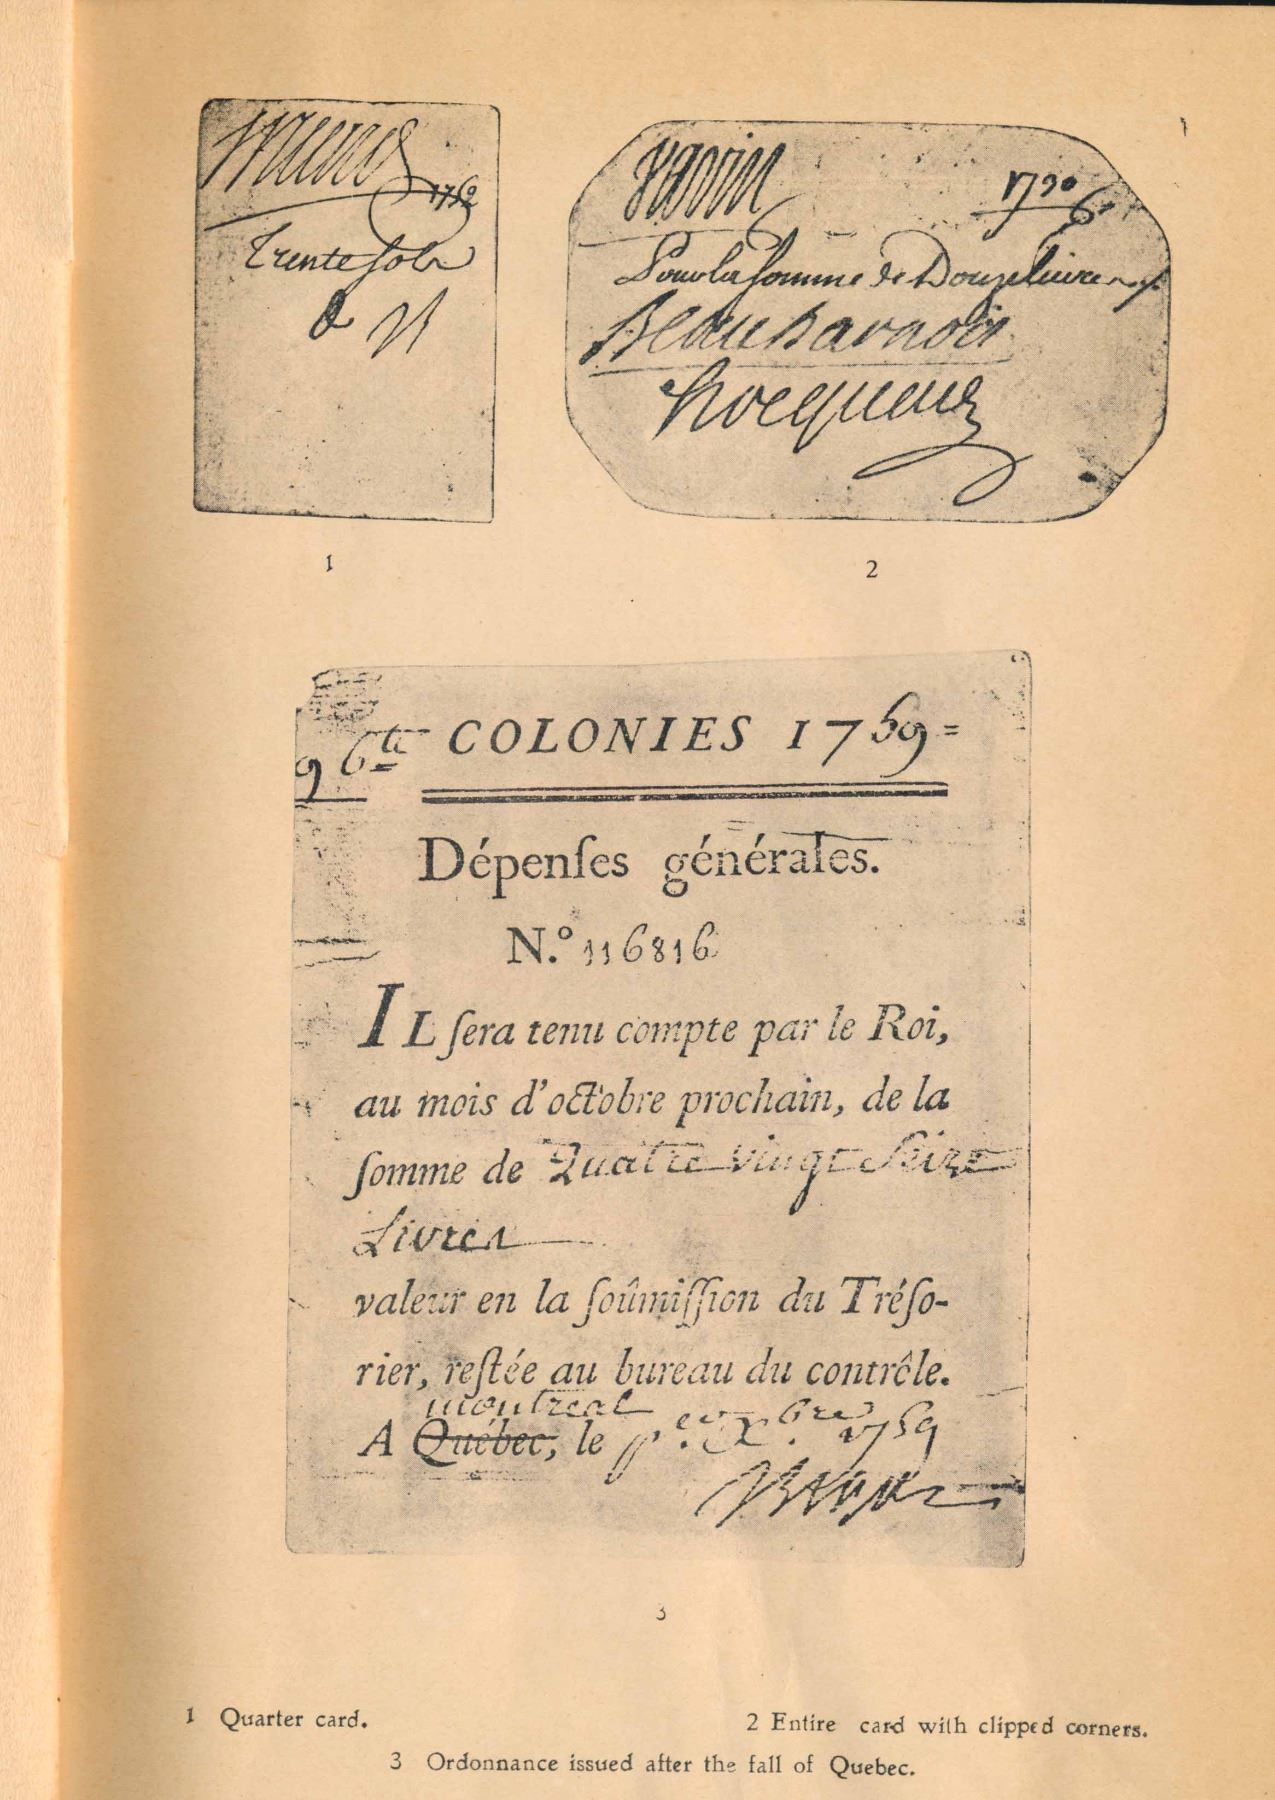 1752
Trente sols
B
1730
Pour la somme de Douze livres
Beauharnois
hocquart
1
2
96tt COLONIES 1759=
Dépenſes générales.
N.º 116816
IL ſera tenu compte par le Roi,
au mois d'octobre prochain, de la
ſomme de Quatre vingt Seize
Livres
valeur en la ſoûmiſſion du Tréſo-
rier, reſtée au bureau du contrôle.
montreal
A Québec, le per. Xbre 1759
3
1 Quarter card.
2 Entire card with clipped corners.
3 Ordonnance issued after the fall of Quebec.